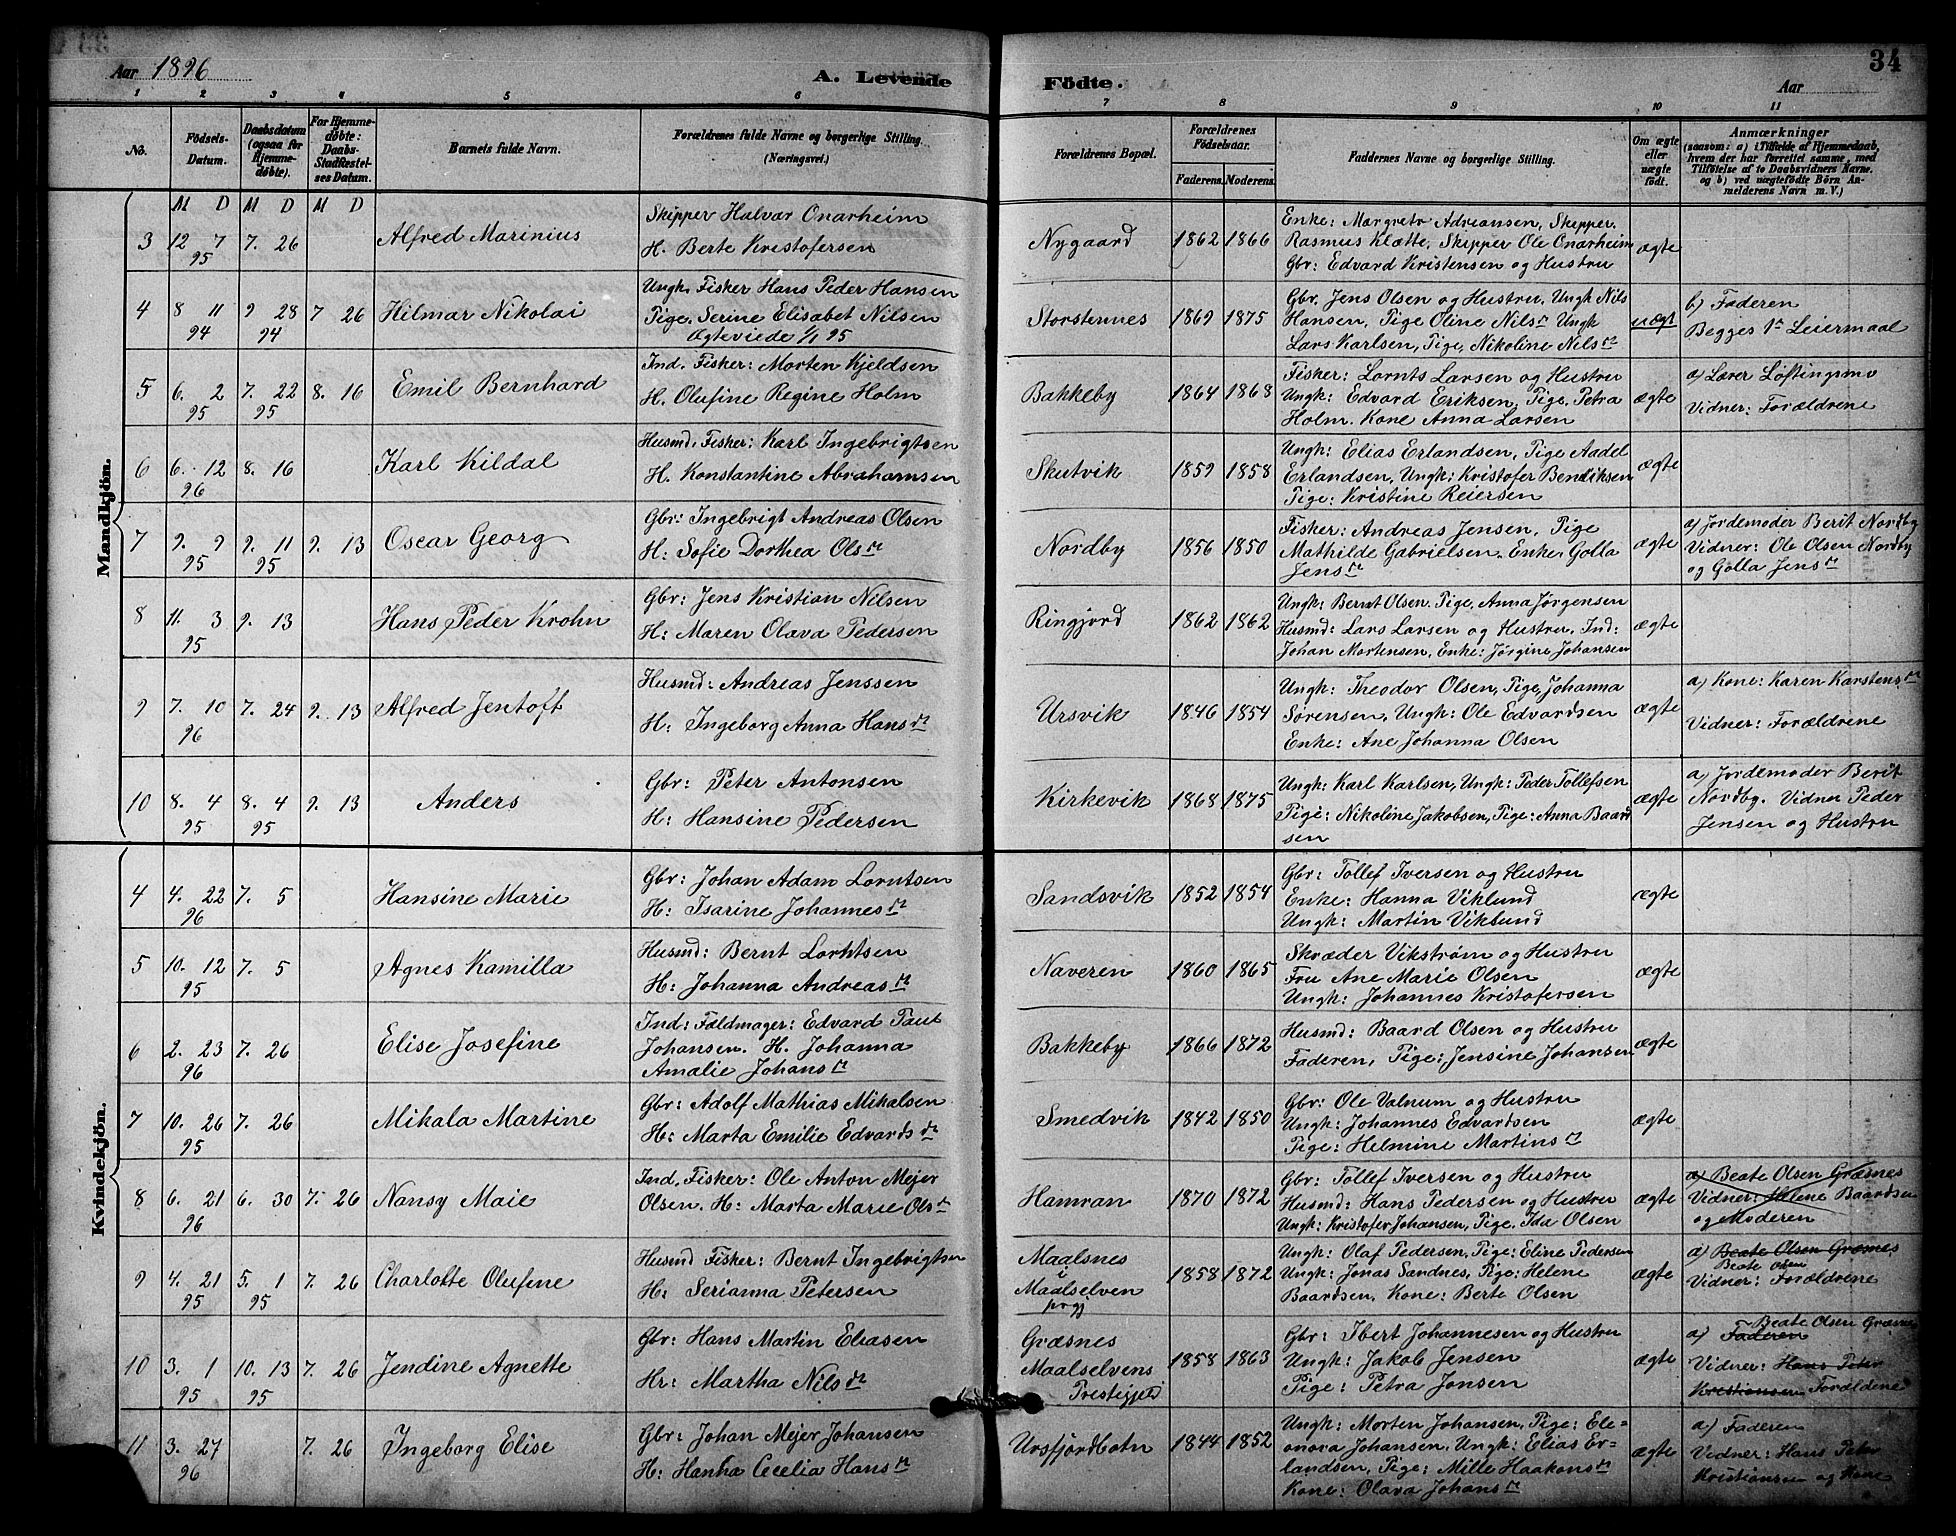 Aar 1896 A. Levende Födte. Aar 34
1 2 3 4 5 6 7 8 9 10 11
No.
Födsels-Datum.
Daabsdatum (ogsaa for Hjemmedøbte).
For Hjemmedøbte: Daabs-Stadfæstelses Datum.
Barnets fulde Navn.
Forældrenes fulde Navne og borgerlige Stilling. (Næringsvei.)
Forældrenes Bopæl.
Forældrenes Födselsaar.
Faderens. Moderens.
Faddernes Navne og borgerlige Stilling.
Om ægte eller uægte født.
Anmærkninger (saasom: a) i Tilfælde af Hjemmedaab, hvem der har forrettet samme, med Tilføielse af to Daabsvidners Navne, og b) ved uægtefödte Börn Anmelderens Navn m. V.)
Mandkjön.
M D M D M D
3 12 7 95 7. 26 Alfred Marinius
Skipper Halvar Onarheim
H. Berte Kristofersen
Nygaard 1862 1866
Enke: Margrete Adreansen, Skipper.
Rasmus Klætte, Skipper Ole Onarheim
Gbr: Edvard Kristensen og Hustru
ægte
4 8 11 94 9 28 94 7 26 Hilmar Nikolai
Ungk. Fisker Hans Peder Hansen
Pige. Serine Elisabet Nilsen
Ægteviede 1/1 95
Storstennes 1869 1875
Gbr. Jens Olsen og Hustru, Ungk Nils
Hansen, Pige Oline Nilsdr Ungk
Lars Karlsen, Pige, Nikoline Nilsdr
uægt
b) Faderen
Begges 1ste Leiermaal
5 6. 2 95 7. 22 95 8. 16 Emil Bernhard
Ind. Fisker: Morten Kjeldsen
H. Olufine Regine Holm
Bakkeby 1864 1868
Fisker: Lornts Larsen og Hustru
Ungk: Edvard Eriksen, Pige, Petra
Holm. Kone Anna Larsen
ægte
a) Lærer Løftingsmo
Vidner: Forældrene
6 6. 12 96 8. 16 Karl Kildal
Husmd. Fisker: Karl Ingebrigtsen
H. Konstantine Abrahamsen
Skutvik 1859 1858
Ungk: Elias Erlandsen, Pige Aadel
Erlandsen, Ungk: Kristofer Bendiksen
Pige: Kristine Reiersen
ægte
7 9. 9 95 9. 11 95 9. 13 Oscar Georg
Gbr: Ingebrigt Andreas Olsen
H: Sofie Dorthea Olsdr
Nordby 1856 1850
Fisker: Andreas Jensen, Pige
Mathilde Gabrielsen. Enke: Golla
Jensdr
ægte
a) Jordemoder Berit Nordby
Vidner: Ole Olsen Nordby
og Golla Jensdr
8 11. 3 95 9. 13 Hans Peder Krohn
Gbr: Jens Kristian Nilsen
H: Maren Olava Pedersen
Ringjord 1862 1862
Ungk: Bernt Olsen. Pige. Anna Jørgensen
Husmd: Lars Larsen og Hustru. Ind:
Johan Mortensen, Enke: Jørgine Johansen
ægte
9 7. 10 96 7. 24 9. 13 Alfred Jentoft
Husmd: Andreas Jenssen
H: Ingeborg Anna Hansdr
Ursvik 1846 1854
Ungk: Theodor Olsen, Pige, Johanna
Sørensen, Ungk: Ole Edvardsen
Enke: Ane Johanna Olsen
ægte
a) Kone: Karen Karstensdr
Vidner: Forældrene
10 8. 4 95 8. 4 95 9. 13 Anders
Gbr: Peter Antonsen
H: Hansine Pedersen
Kirkevik 1868 1875
Ungk: Karl Karlsen, Ungk: Peder Tollefsen
Pige: Nikoline Jakobsen, Pige: Anna Baard
sen
ægte
a) Jordemoder Berit
Nordby. Vidner Peder
Jensen og Hustru
Kvindekjön.
4 4. 22 96 7. 5 Hansine Marie
Gbr: Johan Adam Lorntsen
H: Isarine Johannesdr
Sandsvik 1852 1854
Gbr: Tollef Iversen og Hustru
Enke: Hanna Viklund
Ungk: Martin Viklund
ægte
5 10. 12 95 7. 5 Agnes Kamilla
Husmd: Bernt Lorntsen
H: Johanna Andreasdr
Naveren 1860 1865
Skræder Vikstrøm og Hustru
Fru Ane Marie Olsen
Ungk: Johannes Kristofersen
ægte
6 2. 23 96 7. 26 Elise Josefine
Ind: Fældmager: Edvard Paul
Johansen. H. Johanna
Amalie Johansdr
Bakkeby 1866 1872
Husmd: Baard Olsen og Hustru
Faderen, Pige: Jensine Johansen
ægte
7 10. 26 95 7. 26 Mikala Martine
Gbr: Adolf Mathias Mikalsen
H: Marta Emilie Edvardsdr
Smedvik 1842 1850
Gbr: Ole Valnum og Hustru
Ungk: Johannes Edvardsen
Pige: Helmine Martinsdr
ægte
8 6. 21 96 6. 30 7. 26 Nansy Maie
Ind. Fisker: Ole Anton Mejer
Olsen. H: Marta Marie Olsdr
Hamran 1870 1872
Gbr: Tollef Iversen og Hustru
Husmd: Hans Pedersen og Hustru
Ungk: Kristofer Johansen, Pige. Ida Olsen
ægte
a) Beate Olsen Græsnes
Vidner: Helene Baardsen
og Moderen
9 4. 21 95 5. 1 95 7. 26 Charlotte Olufine
Husmd Fisker: Bernt Ingebrigtsen
H: Serianna Petersen
Maalsnes
i
Maalselven
prgj
1858 1872
Ungk: Olaf Pedersen, Pige: Eline Pedersen
Ungk: Jonas Sandnes, Pige: Helene
Baardsen, Kone: Berte Olsen
ægte
a) Beate Olsen Græsnes
Beate Olsen
Vidner: Forældrene
10 3. 1 95 10. 13 95 7. 26 Jendine Agnette
Gbr: Hans Martin Eliasen
Hr: Martha Nilsdr
Græsnes
Maalselvens
Prestegjeld
1858 1863
Gbr: Ibert Johannesen og Hustru
Ungk: Jakob Jensen
Pige: Petra Jonsen
ægte
Beate Olsen Græsnes
a) Faderen
Vidner: Hans Peter
Kristiansen Forældrene
11 3. 27 96 7. 26 Ingeborg Elise
Gbr: Johan Mejer Johansen
H: Hanna Cecelia Hansdr
Ursfjordbotn 1844 1852
Ungk: Morten Johansen, Pige: Ele-
onora Johansen, Ungk: Elias Er-
landsen, Pige: Mille Haakonsdr
Kone: Olava Johansdr
ægte
a) Faderen
Vidner: Hans Peter
Kristiansen og Kone